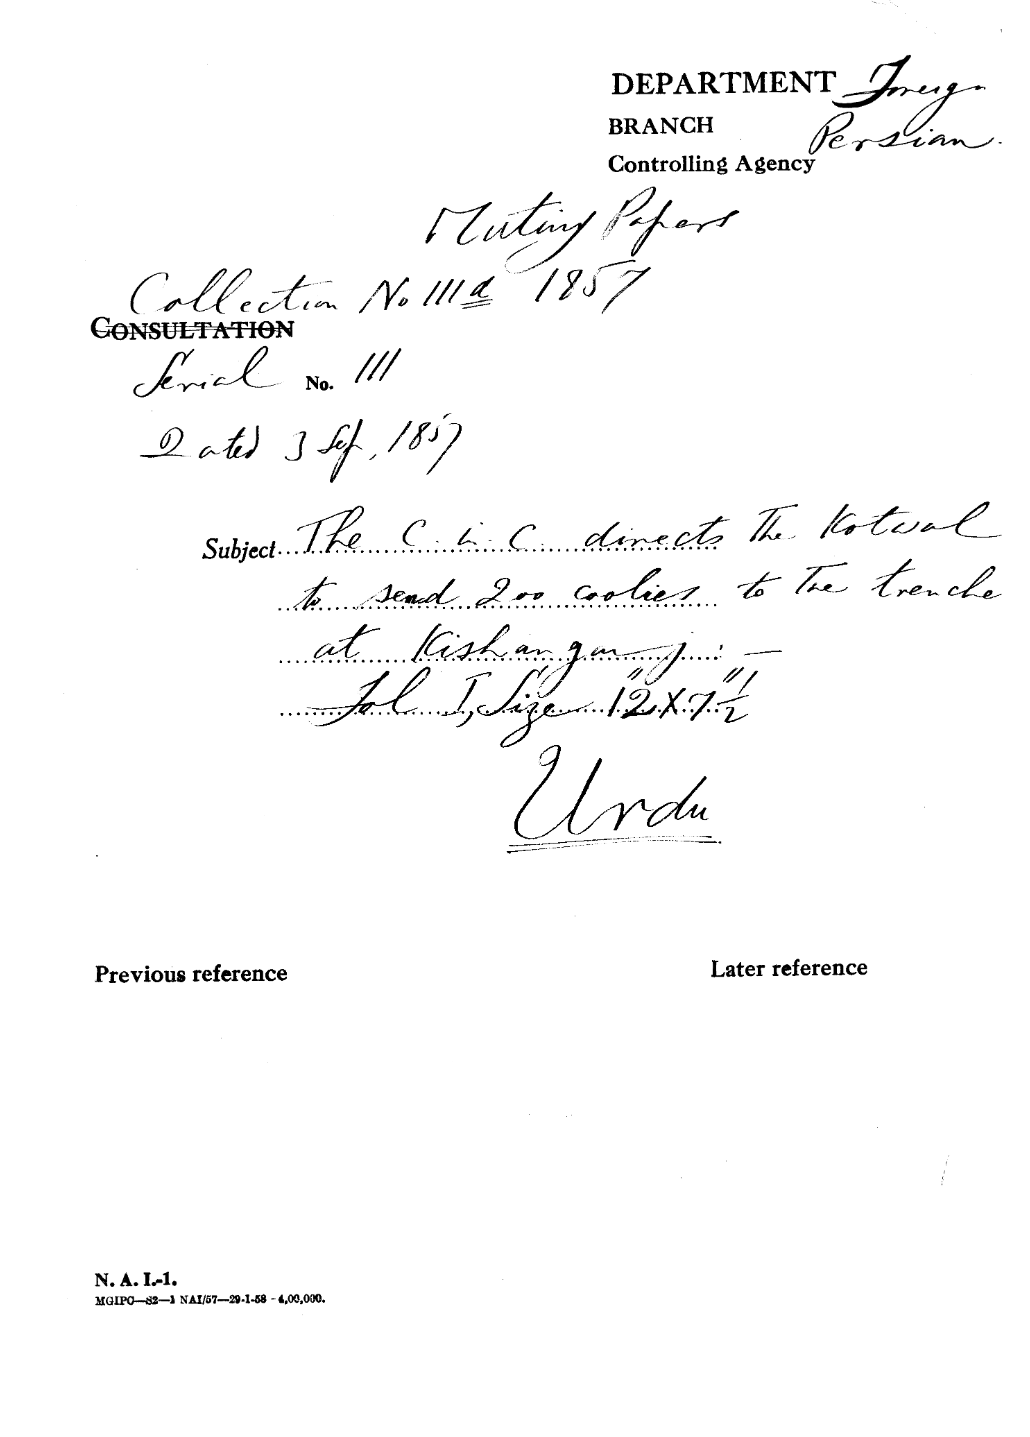 DEPARTMENT Foreign
BRANCH Persian.
Controlling Agency
Mutiny Papers
Collection No 111d 1857
CONSULTATION
Serial No. 111
Dated 3 Sep, 1857
Subject The C. in C. directs The Kotwal
to send 200 coolies to The trenche
at Kishanganj: —
Fol I, Size 12" X 7"½
Urdu
Previous reference Later reference
N. A. I.-1.
MGIPC—S2—1 NAI/57—29-1-58 - 4,00,000.